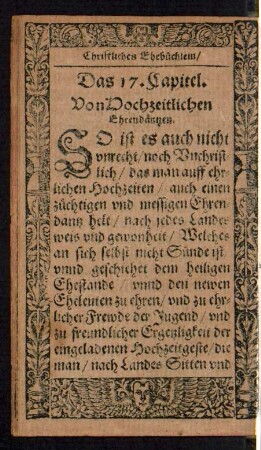 Christliches Ehebüchlein/
Das 17. Capitel.
Von Hochzeitlichen
Ehrendäntzen.
SO ist es auch nicht
vnrecht/ noch Vnchrist
lich/ das man auff ehr
lichen Hochzeiten/ auch einen
züchtigen vnd messigen Ehren
dantz helt/ nach jedes Landes
weis vnd gewonheit/ Welches
an sich selbst nicht Sünde ist
vnnd geschichet dem heiligen
Ehestande/ vnnd den newen
Eheleuten zu ehren/ vnd zu ehr
licher Frewde der Jugend/ vnd
zu freundlicher Ergetzligkeit der
eingeladenen Hochzeitgeste/ die
man/ nach Landes Sitten vnd